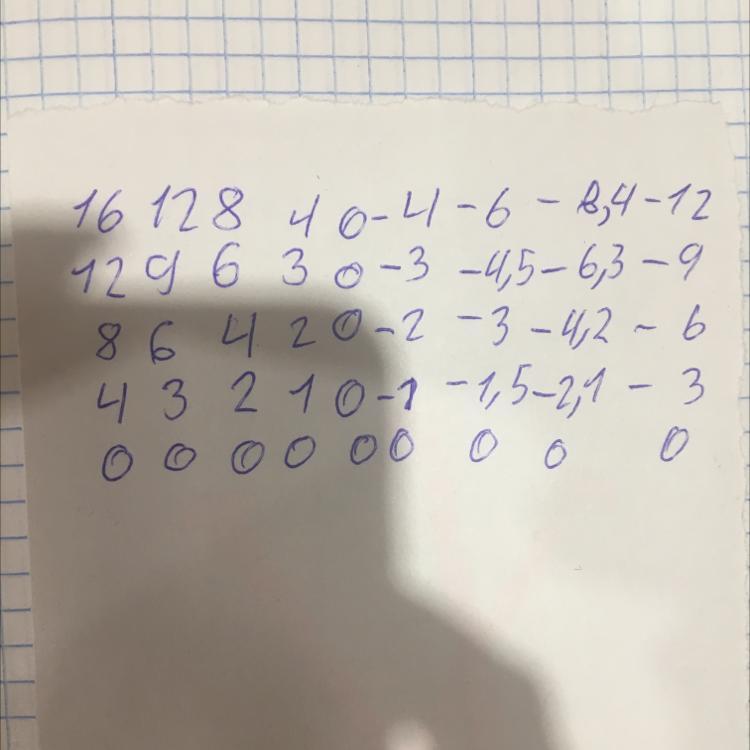 16 12 8 4 0 -4 -6 -8,4 -12
12 9 6 3 0 -3 -4,5 -6,3 -9
8 6 4 2 0 -2 -3 -4,2 -6
4 3 2 1 0 -1 -1,5 -2,1 -3
0 0 0 0 0 0 0 0 0